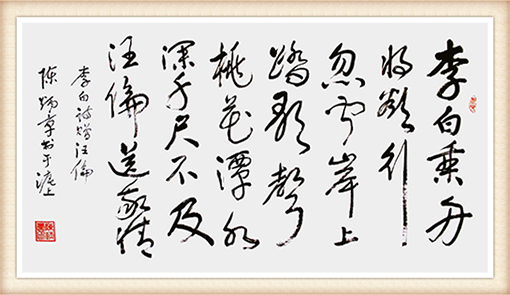 李白乘舟
将欲行
忽闻岸上
踏歌聲
桃花潭水
深千尺不及
汪倫送我情
李白诗赠汪倫
陈炳章书于沪上